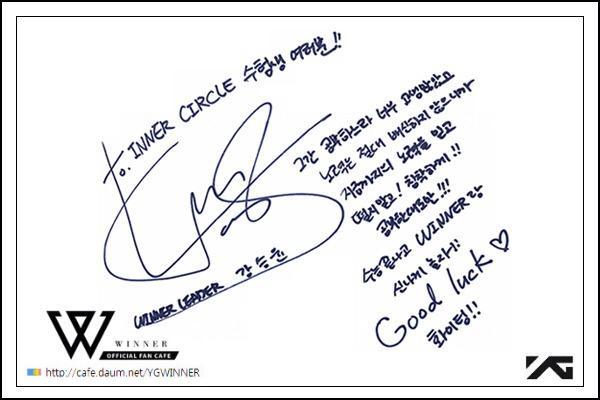 to. INNER CIRCLE 수험생 여러분!!
그간 공부하느라 너무 고생많았고
노력은 절대 배신하지 않으니까
지금까지의 노력을 믿고
떨지말고! 침착하게!!
공부한대로만!!!
수능끝나고 WINNER랑
신나게 놀자구!
Good luck ♡
화이팅!!
WINNER LEADER 강승윤
W
WINNER
OFFICIAL FAN CAFE
http://cafe.daum.net/YGWINNER
YG